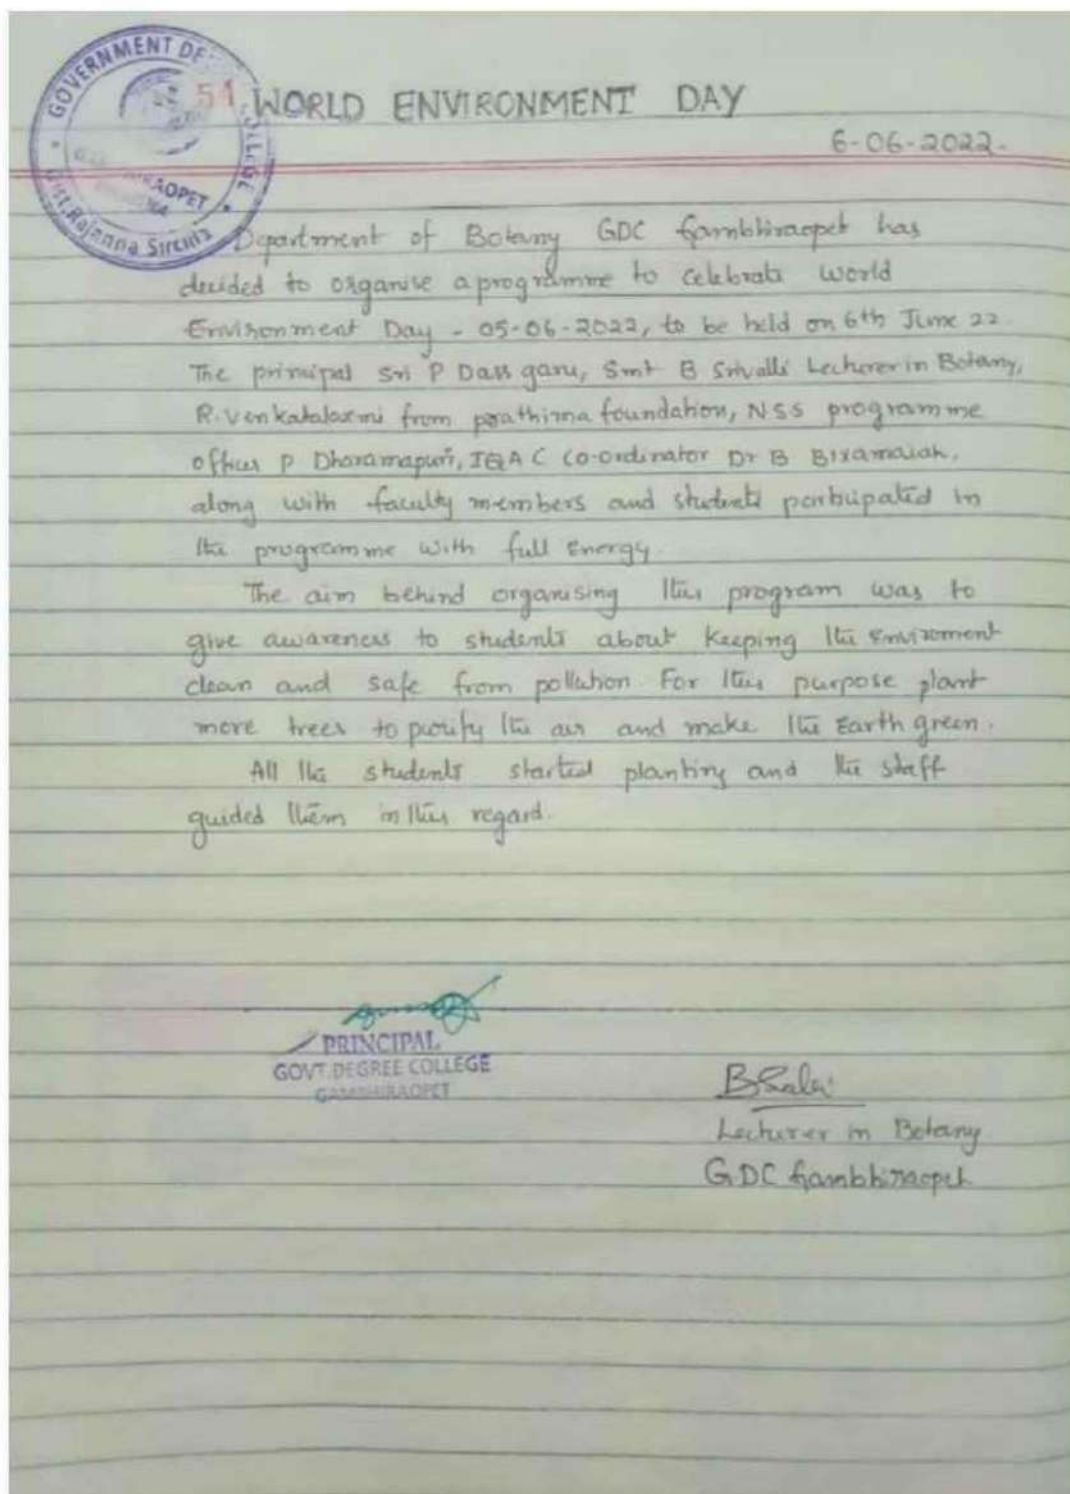 GOVERNMENT DE
COLLEGE
51. WORLD ENVIRONMENT DAY
6-06-2022.
RAOPET
Dist. Rajanna Sircilla
Department of Botany GDC Gambhiraopet has
decided to organise a programme to celebrate world
Environment Day - 05-06-2022, to be held on 6th June 22.
The principal Sri P Dass garu, Smt B Srivalli Lecturer in Botany,
R. Venkatalaxmi from prathima foundation, NSS programme
officer P Dharamapuri, IQAC Co-ordinator Dr B Bixamaiah,
along with faculty members and students participated in
the programme with full Energy.
The aim behind organising this program was to
give awareness to students about keeping the Enviroment
clean and safe from pollution. For this purpose plant
more trees to purify the air and make the Earth green.
All the students started planting and the staff
guided them in this regard.
PRINCIPAL
GOVT. DEGREE COLLEGE
GAMBHIRAOPET
Lecturer in Botany
GDC Gambhiraopet